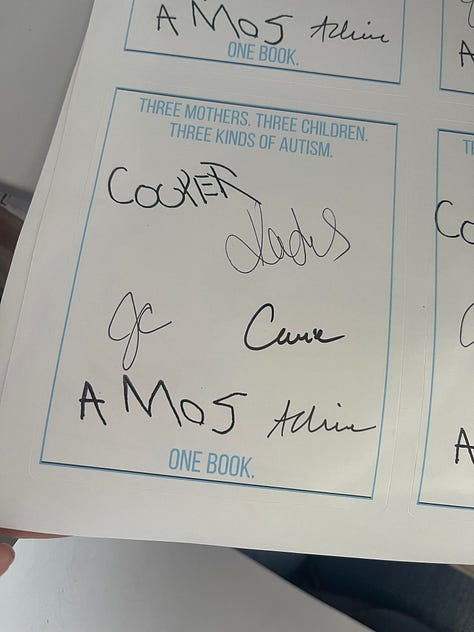 AMOS Adrian
ONE BOOK.
THREE MOTHERS. THREE CHILDREN.
THREE KINDS OF AUTISM.
COOPER
JC
AMOS Adrian
ONE BOOK.